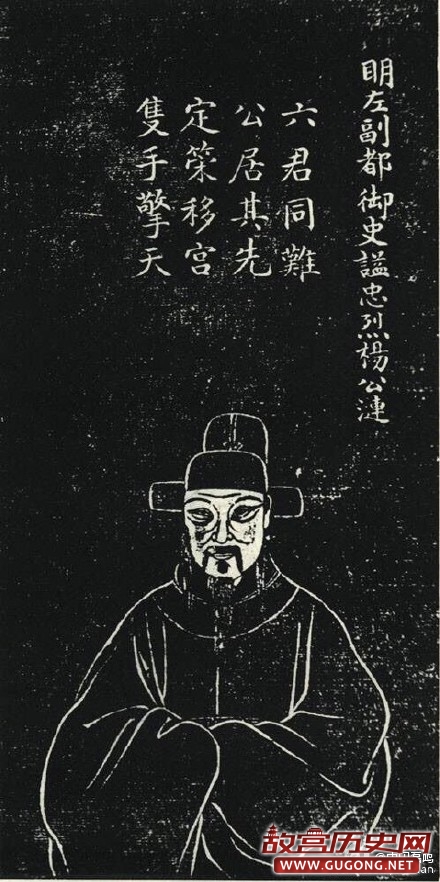 明左副都御史謚忠烈楊公漣
六君同難
公居其先
定策移宮
隻手擎天
故宫历史网
www.GUGONG.net